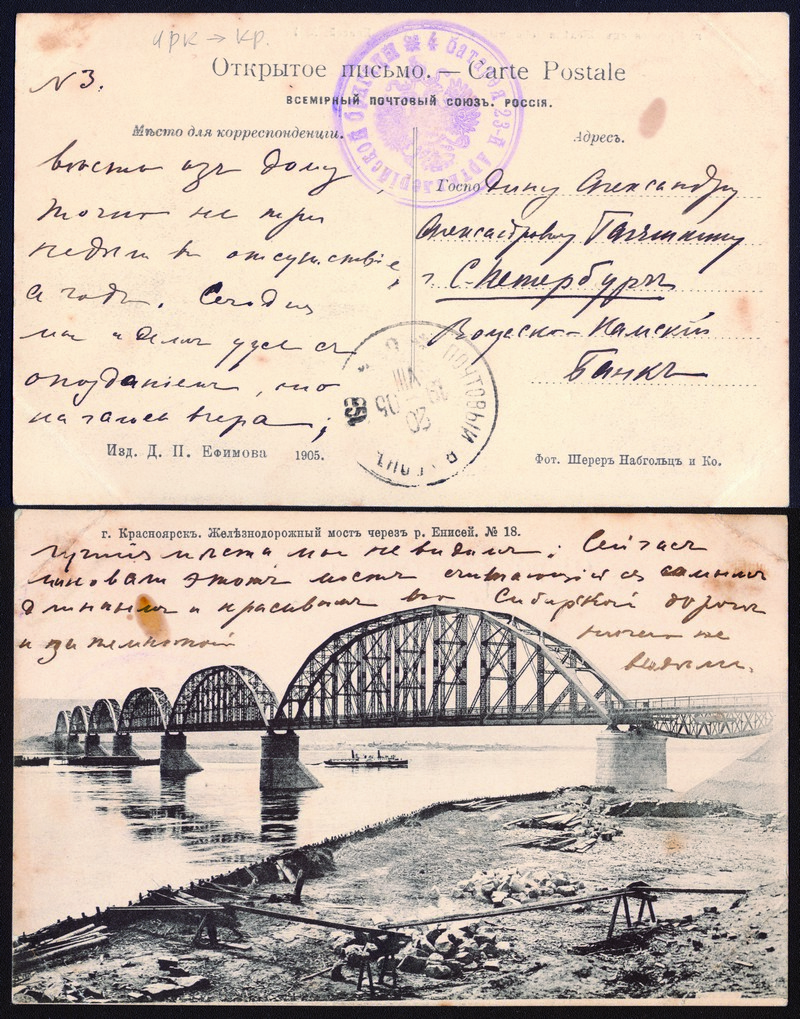 ирк → кр.
N 3.
Открытое письмо. — Carte Postale
ВСЕМІРНЫЙ ПОЧТОВЫЙ СОЮЗЪ. РОССІЯ.
4 батарея 23-й Артиллерійской бригады
Мѣсто для корреспонденціи.
Адресъ.
изъ дому
точно не три
недѣли въ отсутствіе,
а годъ. Сегодня
мы и
опозданіемъ, но
началось вчера;
Господину Александру
Александровичу
г. С-Петербургъ
Волжско-Камскій
Банкъ
ПОЧТОВЫЙ ВАГОНЪ
20 VIII 05
Изд. Д. П. Ефимова 1905.
Фот. Шереръ Набгольцъ и Ко.
г. Красноярскъ. Желѣзнодорожный мостъ черезъ р. Енисей. № 18.
лучшія мѣста мы не видали; Сейчасъ
миновали этотъ мостъ считающійся самымъ
длиннымъ и красивымъ по Сибирской дорогѣ
и за темнотой ничего не
видали.